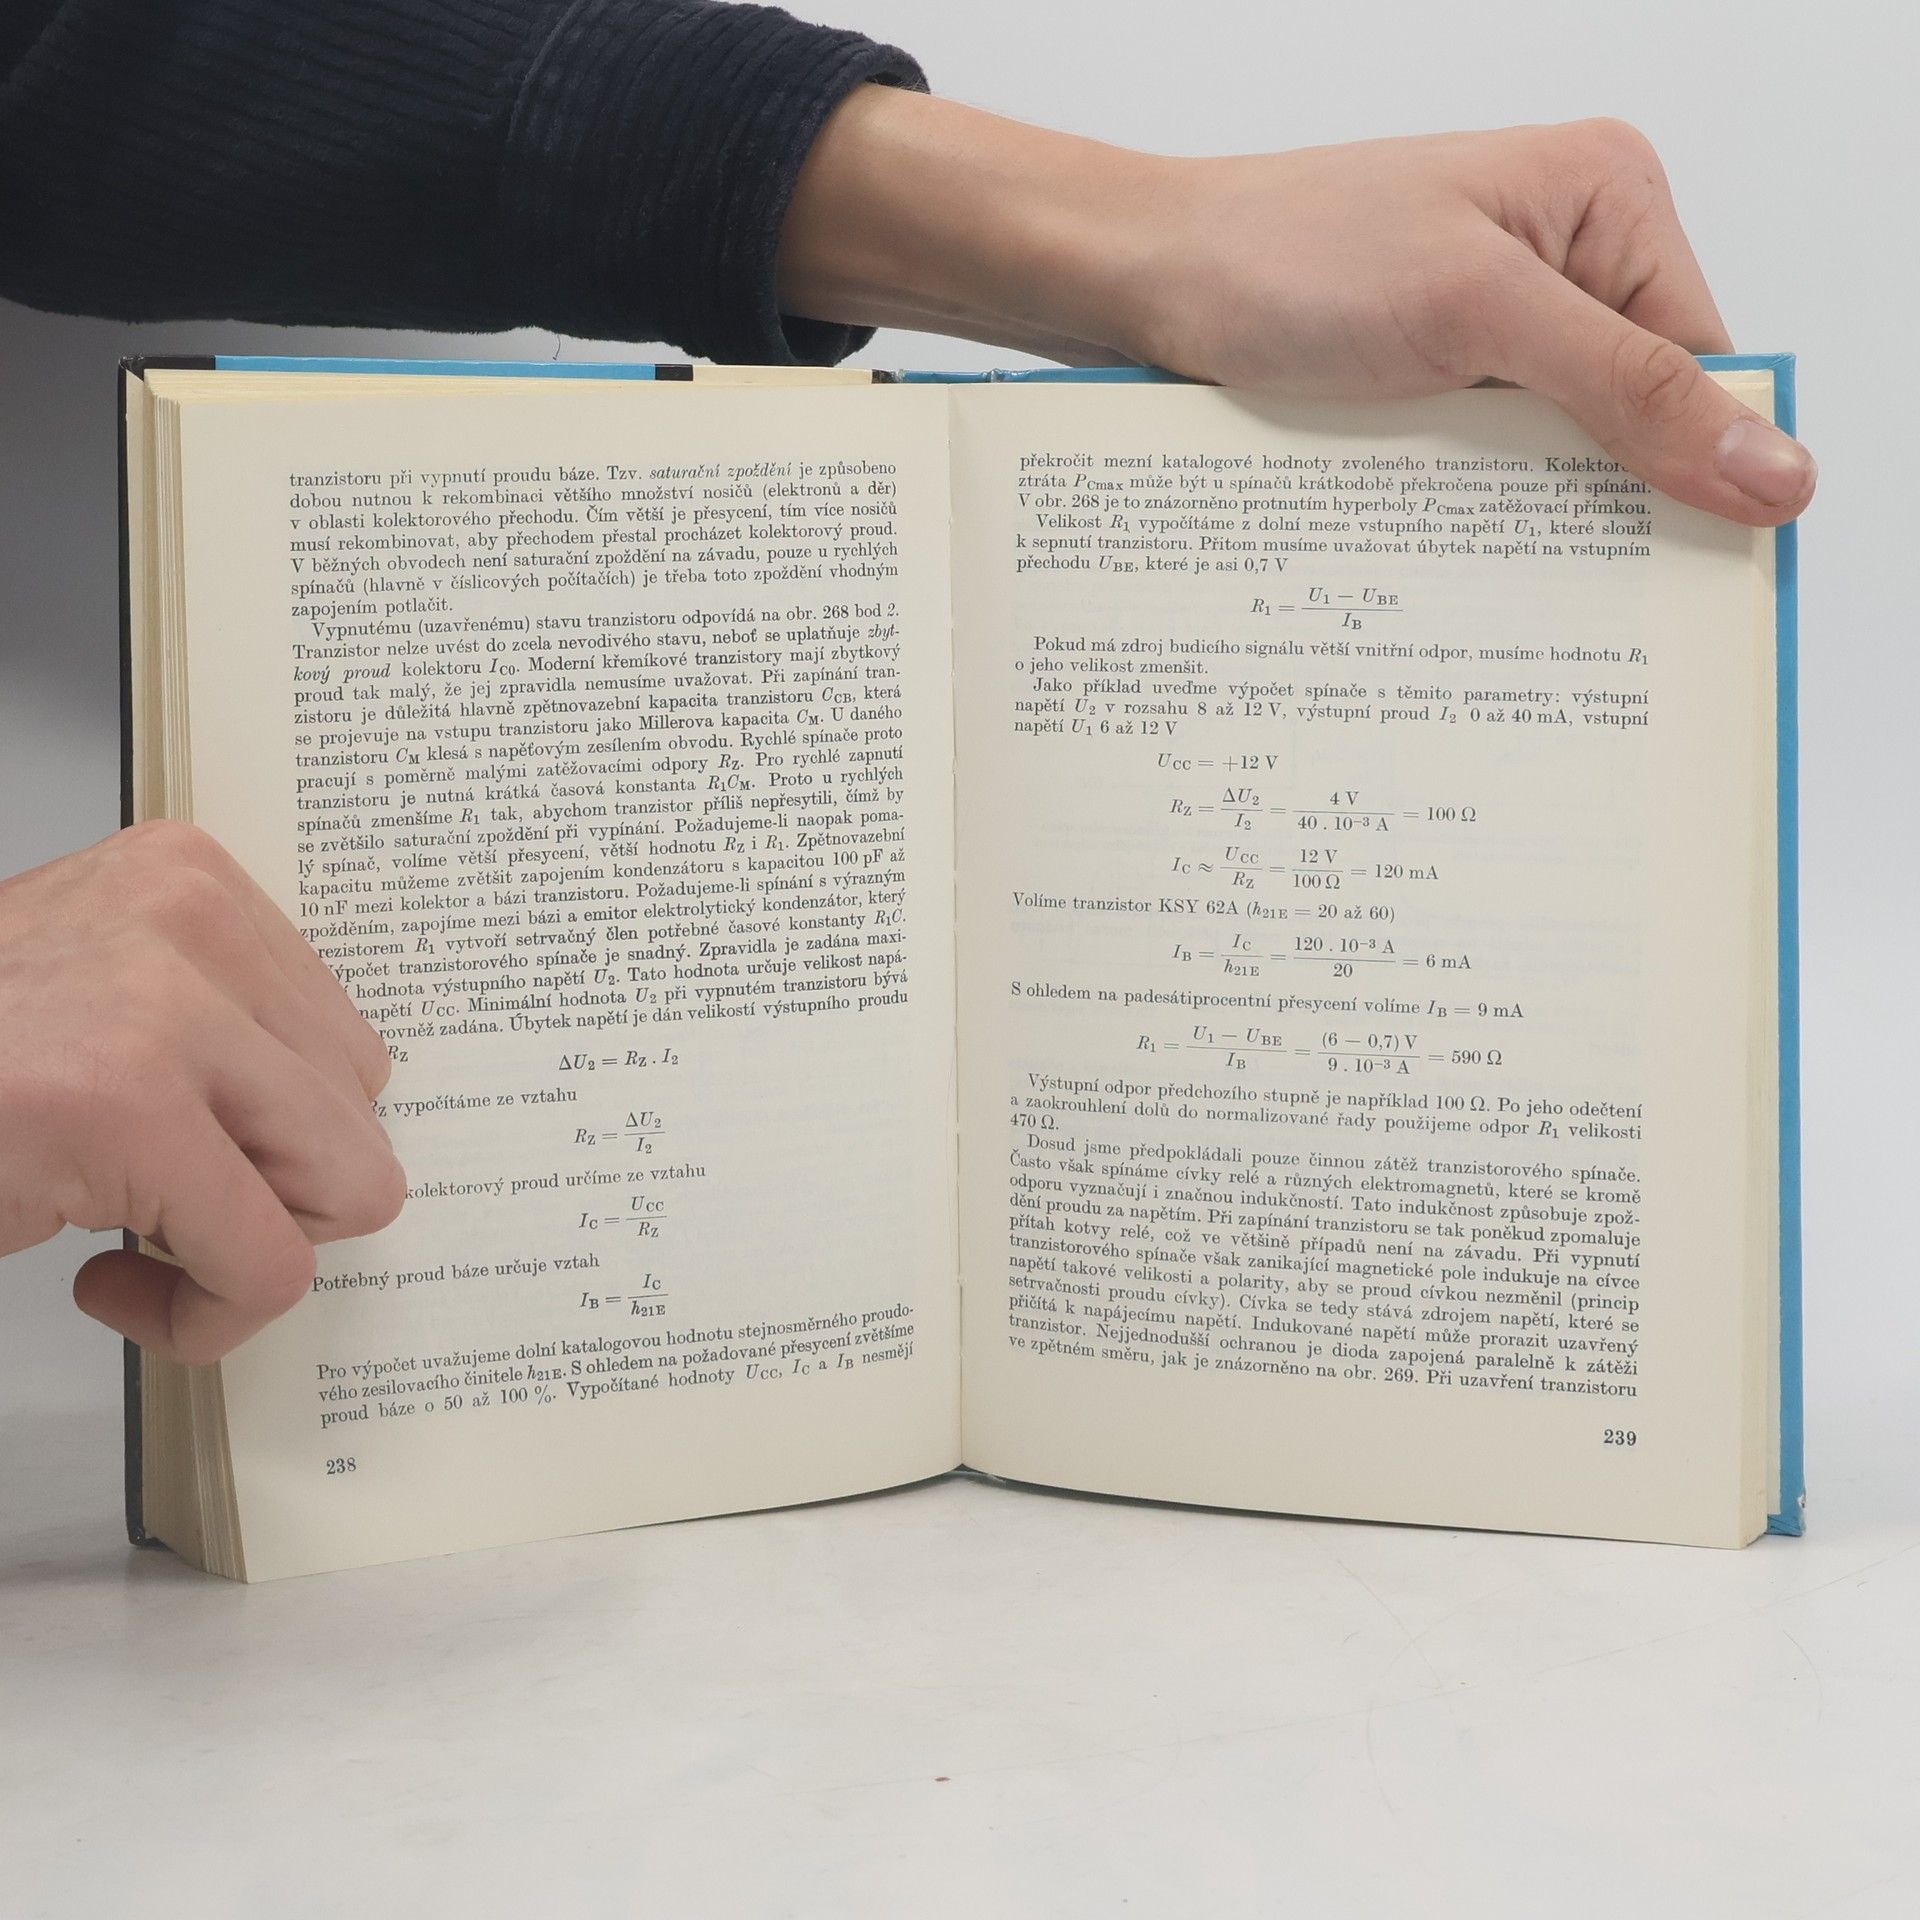 tranzistoru při vypnutí proudu báze. Tzv. saturační zpoždění je způsobeno
dobou nutnou k rekombinaci většího množství nosičů (elektronů a děr)
v oblasti kolektorového přechodu. Čím větší je přesycení, tím více nosičů
musí rekombinovat, aby přechodem přestal procházet kolektorový proud.
V běžných obvodech není saturační zpoždění na závadu, pouze u rychlých
spínačů (hlavně v číslicových počítačích) je třeba toto zpoždění vhodným
zapojením potlačit.
Vypnutému (uzavřenému) stavu tranzistoru odpovídá na obr. 268 bod 2.
Tranzistor nelze uvést do zcela nevodivého stavu, neboť se uplatňuje zbyt-
kový proud kolektoru I_C0. Moderní křemíkové tranzistory mají zbytkový
proud tak malý, že jej zpravidla nemusíme uvažovat. Při zapínání tran-
zistoru je důležitá hlavně zpětnovazební kapacita tranzistoru C_CB, která
se projevuje na vstupu tranzistoru jako Millerova kapacita C_M. U daného
tranzistoru C_M klesá s napěťovým zesílením obvodu. Rychlé spínače proto
pracují s poměrně malými zatěžovacími odpory R_Z. Pro rychlé zapnutí
tranzistoru je nutná krátká časová konstanta R_1C_M. Proto u rychlých
spínačů zmenšíme R_1 tak, abychom tranzistor příliš nepřesytili, čímž by
se zvětšilo saturační zpoždění při vypínání. Požadujeme-li naopak poma-
lý spínač, volíme větší přesycení, větší hodnotu R_Z i R_1. Zpětnovazební
kapacitu můžeme zvětšit zapojením kondenzátoru s kapacitou 100 pF až
10 nF mezi kolektor a bázi tranzistoru. Požadujeme-li spínání s výrazným
zpožděním, zapojíme mezi bázi a emitor elektrolytický kondenzátor, který
rezistorem R_1 vytvoří setrvačný člen potřebné časové konstanty R_1C.
Výpočet tranzistorového spínače je snadný. Zpravidla je zadána maxi-
hodnota výstupního napětí U_2. Tato hodnota určuje velikost napá-
napětí U_CC. Minimální hodnota U_2 při vypnutém tranzistoru bývá
rovněž zadána. Úbytek napětí je dán velikostí výstupního proudu
R_Z
ΔU_2 = R_Z . I_2
R_Z vypočítáme ze vztahu
R_Z = ΔU_2 / I_2
kolektorový proud určíme ze vztahu
I_C = U_CC / R_Z
Potřebný proud báze určuje vztah
I_B = I_C / h_21E
Pro výpočet uvažujeme dolní katalogovou hodnotu stejnosměrného proudo-
vého zesilovacího činitele h_21E. S ohledem na požadované přesycení zvětšíme
proud báze o 50 až 100 %. Vypočítané hodnoty U_CC, I_C a I_B nesmějí
238
překročit mezní katalogové hodnoty zvoleného tranzistoru.
ztráta P_Cmax může být u spínačů krátkodobě překročena pouze při spínání.
V obr. 268 je to znázorněno protnutím hyperboly P_Cmax zatěžovací přímkou.
Velikost R_1 vypočítáme z dolní meze vstupního napětí U_1, které slouží
k sepnutí tranzistoru. Přitom musíme uvažovat úbytek napětí na vstupním
přechodu U_BE, které je asi 0,7 V
R_1 = (U_1 − U_BE) / I_B
Pokud má zdroj budicího signálu větší vnitřní odpor, musíme hodnotu R_1
o jeho velikost zmenšit.
Jako příklad uveďme výpočet spínače s těmito parametry: výstupní
napětí U_2 v rozsahu 8 až 12 V, výstupní proud I_2 0 až 40 mA, vstupní
napětí U_1 6 až 12 V
U_CC = +12 V
R_Z = ΔU_2 / I_2 = 4 V / 40 . 10⁻³ A = 100 Ω
I_C ≈ U_CC / R_Z = 12 V / 100 Ω = 120 mA
Volíme tranzistor KSY 62A (h_21E = 20 až 60)
I_B = I_C / h_21E = 120 . 10⁻³ A / 20 = 6 mA
S ohledem na padesátiprocentní přesycení volíme I_B = 9 mA
R_1 = (U_1 − U_BE) / I_B = (6 − 0,7) V / 9 . 10⁻³ A = 590 Ω
Výstupní odpor předchozího stupně je například 100 Ω. Po jeho odečtení
a zaokrouhlení dolů do normalizované řady použijeme odpor R_1 velikosti
470 Ω.
Dosud jsme předpokládali pouze činnou zátěž tranzistorového spínače.
Často však spínáme cívky relé a různých elektromagnetů, které se kromě
odporu vyznačují i značnou indukčností. Tato indukčnost způsobuje zpož-
dění proudu za napětím. Při zapínání tranzistoru se tak poněkud zpomaluje
přítah kotvy relé, což ve většině případů není na závadu. Při vypnutí
tranzistorového spínače však zanikající magnetické pole indukuje na cívce
napětí takové velikosti a polarity, aby se proud cívkou nezměnil (princip
setrvačnosti proudu cívky). Cívka se tedy stává zdrojem napětí, které se
přičítá k napájecímu napětí. Indukované napětí může prorazit uzavřený
tranzistor. Nejjednodušší ochranou je dioda zapojená paralelně k zátěži
ve zpětném směru, jak je znázorněno na obr. 269. Při uzavření tranzistoru
239